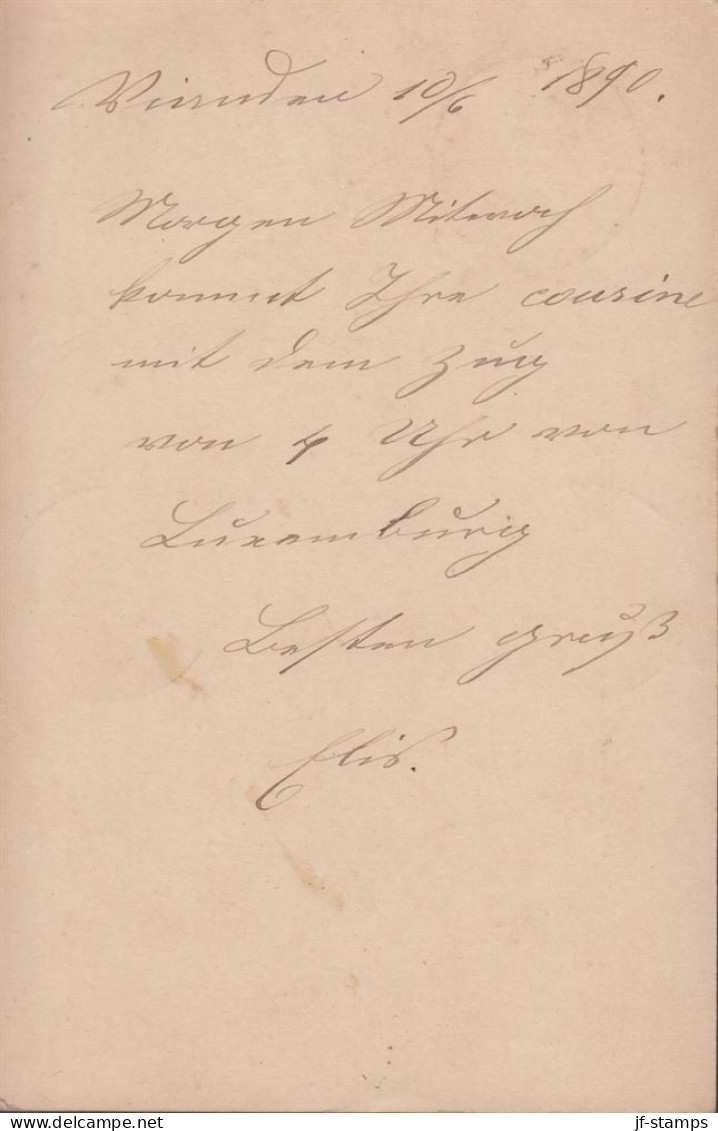 Vianden 10/6 1890.
Morgen Mitwoch
kommt Ihre cousine
mit dem Zug
von 4 Uhr von
Luxemburg
Besten gruß
Elis.
delcampe.net
jf-stamps